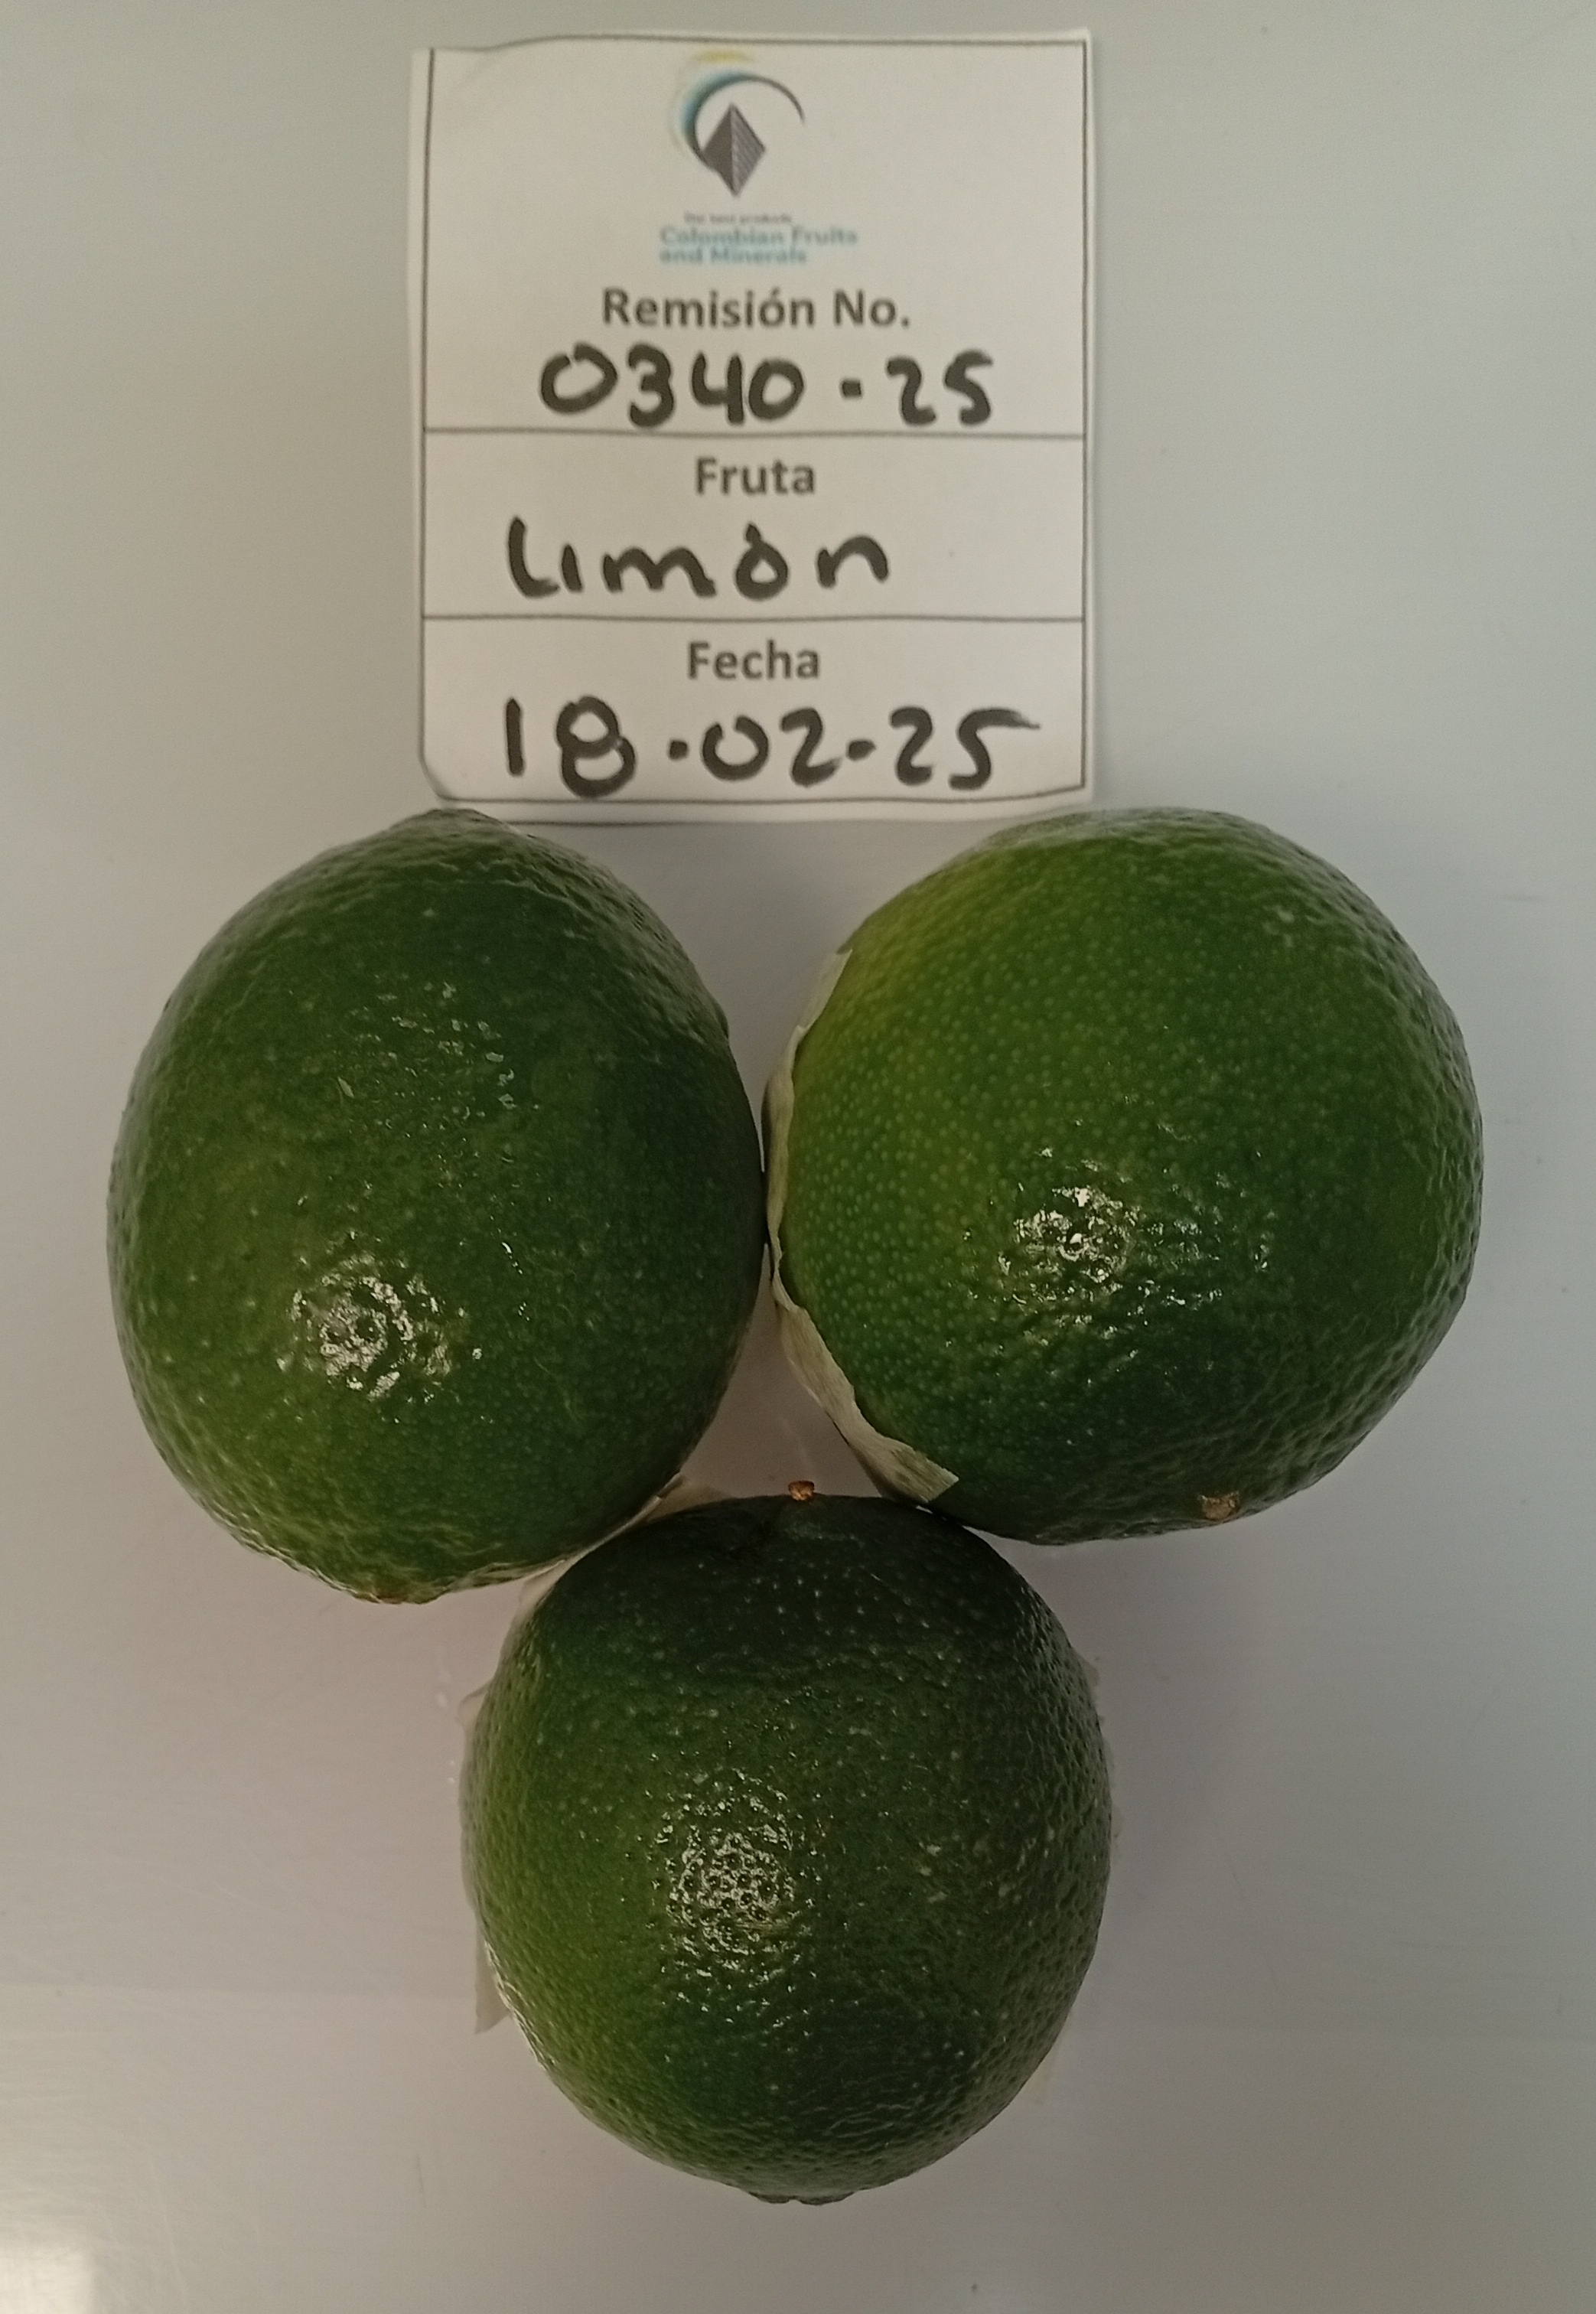 Our best products
Colombian Fruits
and Minerals
Remisión No.
0340-25
Fruta
Limón
Fecha
18-02-25